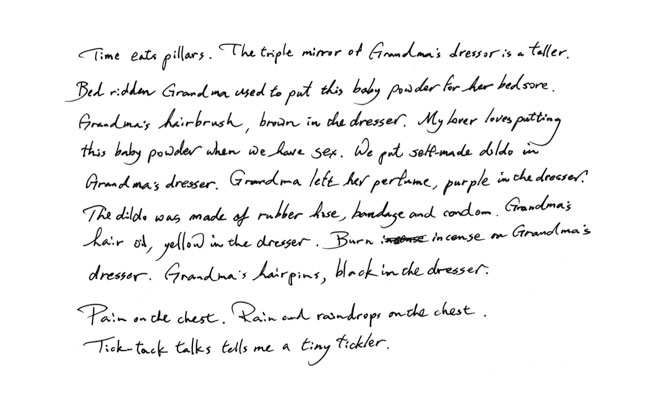 Time eats pillars. The triple mirror of Grandma's dressor is a teller.
Bed ridden Grandma used to put this baby powder for her bedsore.
Grandma's hairbrush, brown in the dresser. My lover loves putting
this baby powder when we have sex. We put self-made dildo in
Grandma's dresser. Grandma left her perfume, purple in the dresser.
The dildo was made of rubber hose, bandage and condom. Grandma's
hair oil, yellow in the dresser. Burn incense on Grandma's
dresser. Grandma's hairpins, black in the dresser.
Pain on the chest. Rain and raindrops on the chest.
Tick-tack talks tells me a tiny tickler.